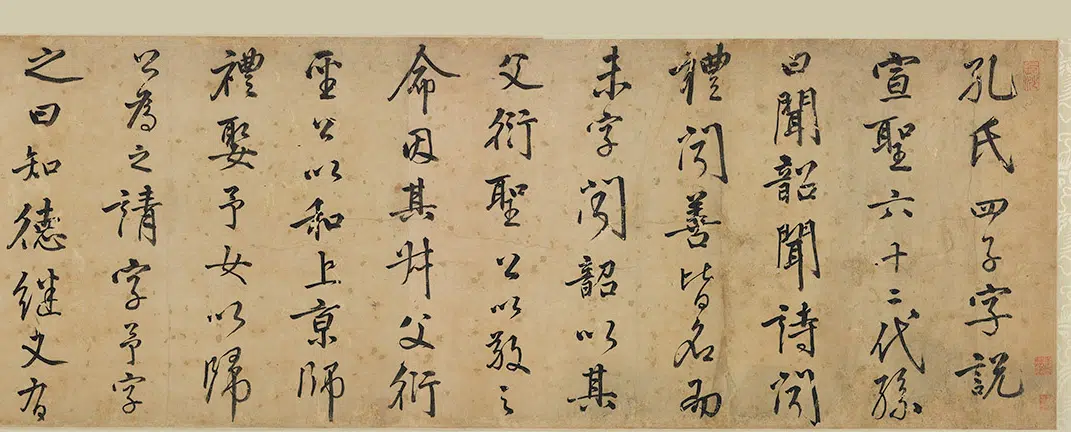 孔氏四子字説
宣聖六十二代孫
曰聞韶聞詩聞
禮聞善皆名而
未字聞韶以其
父衍聖公以敬之
命因其叔父衍
聖公以和上京師
禮娶予女以歸
公為之請字予字
之曰知德继又有